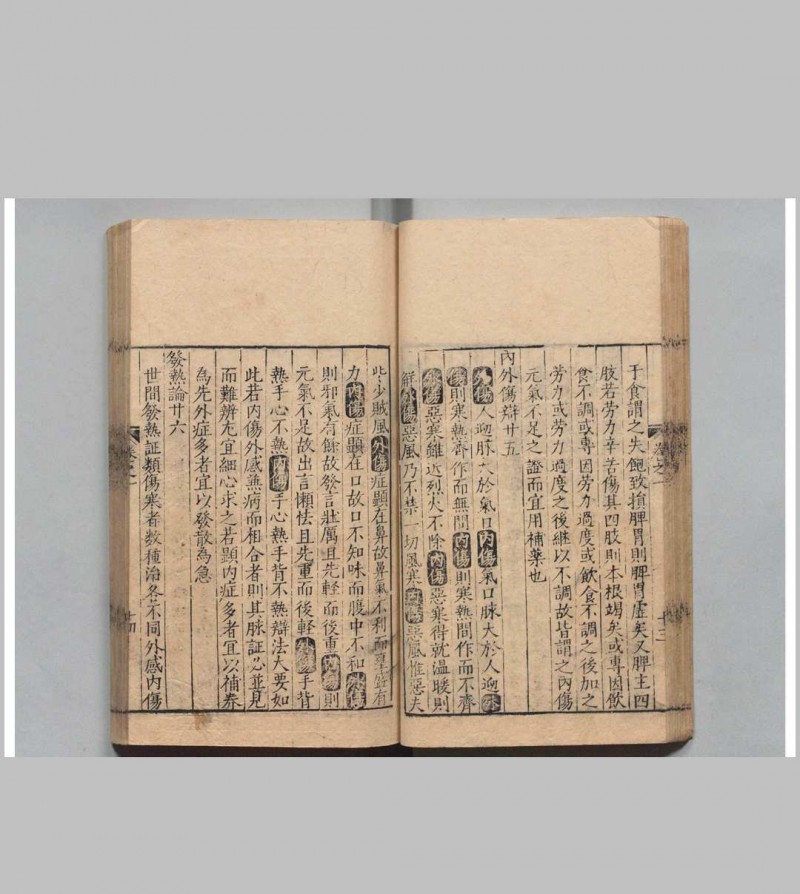 于食謂之失飽致損脾胃則脾胃虛矣又脾主四
肢若勞力辛苦傷其四肢則本根竭矣或專因飲
食不調或專因勞力過度或飲食不調之後加之
勞力或勞力過度之後繼以不調故皆謂之內傷
元氣不足之證而宜用補藥也
內外傷辯廿五
外傷人迎脉大於氣口內傷氣口脉大於人迎外
傷則寒熱齊作而無間內傷則寒熱間作而不齊
外傷惡寒雖近烈火不除內傷惡寒得就溫暖則
解外傷惡風乃不禁一切風寒內傷惡風惟惡夫
些少賊風外傷症顯在鼻故鼻氣不利而壅盛有
力內傷症顯在口故口不知味而腹中不和外傷
則邪氣有餘故發言壯厲且先輕而後重內傷則
元氣不足故出言懶怯且先重而後輕外傷手背
熱手心不熱內傷手心熱手背不熱辯法大要如
此若內傷外感兼病而相合者則其脉証必並見
而難辨尤宜細心求之若顯內症多者宜以補養
為先外症多者宜以發散為急
發熱論廿六
世間發熱証類傷寒者数種治各不同外感內傷